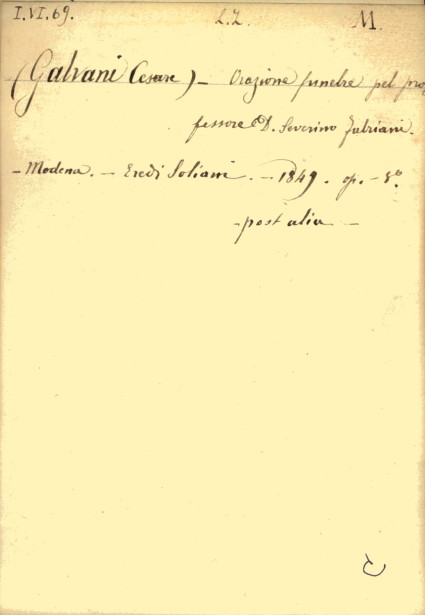 I.VI.69. L.L. M.
(Galvani Cesare) — Orazione funebre pel pro,
fessore D. Severino Fabriani.
— Modena. — Eredi Soliani. — 1849. op. — 8.°
— post alia —